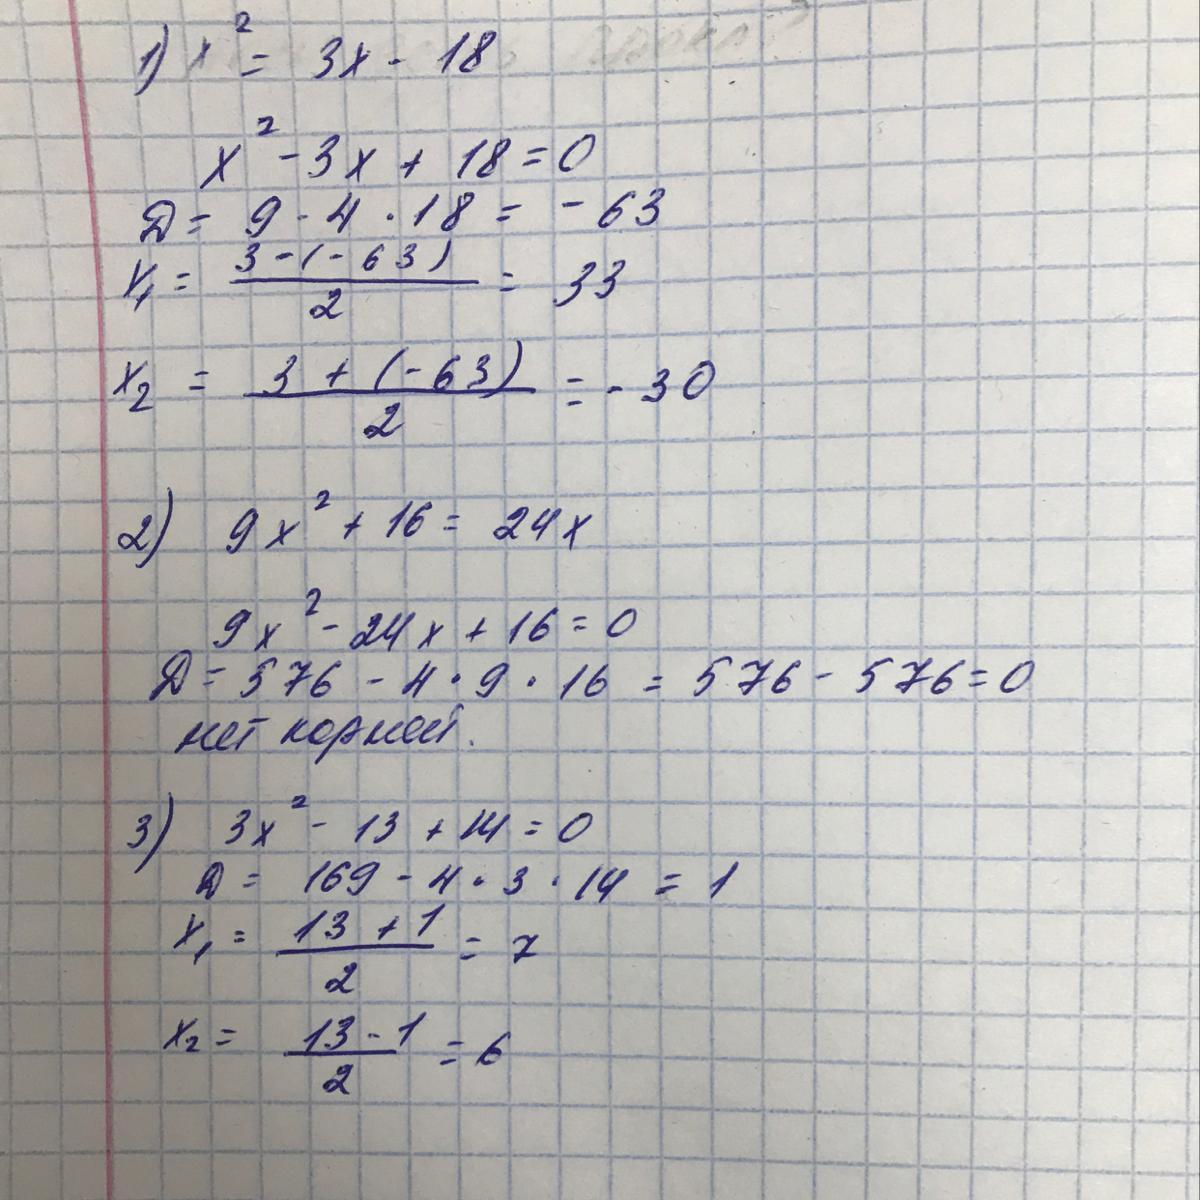 1) x² = 3x - 18
x² - 3x + 18 = 0
D = 9 - 4 · 18 = - 63
x₁ = (3 - (- 63)) / 2 = 33
x₂ = (3 + (- 63)) / 2 = - 30
2) 9x² + 16 = 24x
9x² - 24x + 16 = 0
D = 576 - 4 · 9 · 16 = 576 - 576 = 0
нет корней.
3) 3x² - 13 + 14 = 0
D = 169 - 4 · 3 · 14 = 1
x₁ = (13 + 1) / 2 = 7
x₂ = (13 - 1) / 2 = 6